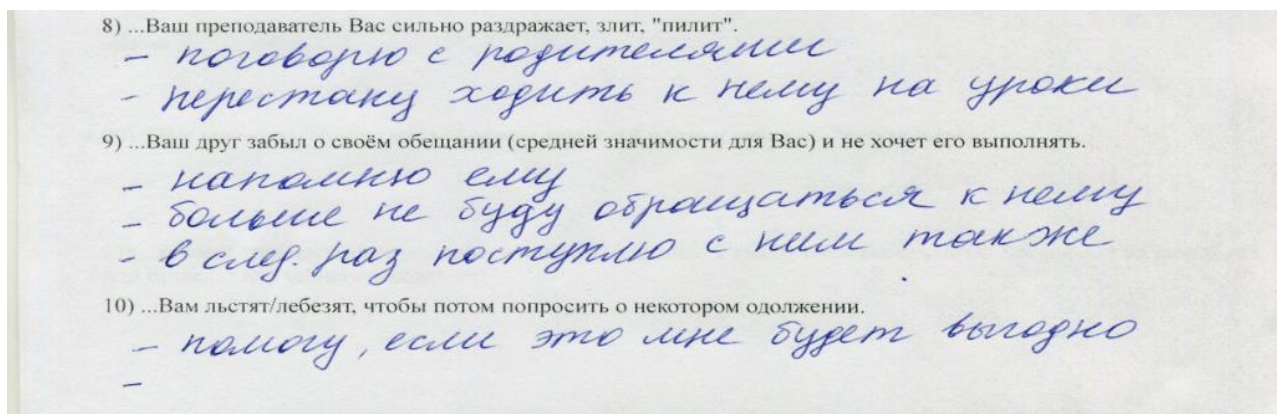 8) ...Ваш преподаватель Вас сильно раздражает, злит, "пилит".
- поговорю с родителями
- перестану ходить к нему на уроки
9) ...Ваш друг забыл о своём обещании (средней значимости для Вас) и не хочет его выполнять.
- напомню ему
- больше не буду обращаться к нему
- в след. раз поступлю с ним также
10) ...Вам льстят/лебезят, чтобы потом попросить о некотором одолжении.
- помогу, если это мне будет выгодно
-